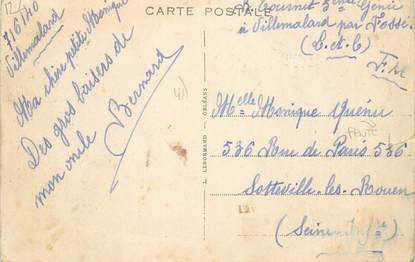 CARTE POSTALE
7/6/40
Villemalard
Ma chère petite Monique
Des gros baisers de
mon oncle
Bernard
L. LENORMAND - ORLÉANS
à Villemalard par Fossé
(L-et-C)
F.M
Melle Monique Quénu
536 Rue de Paris 536
Sotteville-les-Rouen
(Seine-Infre)